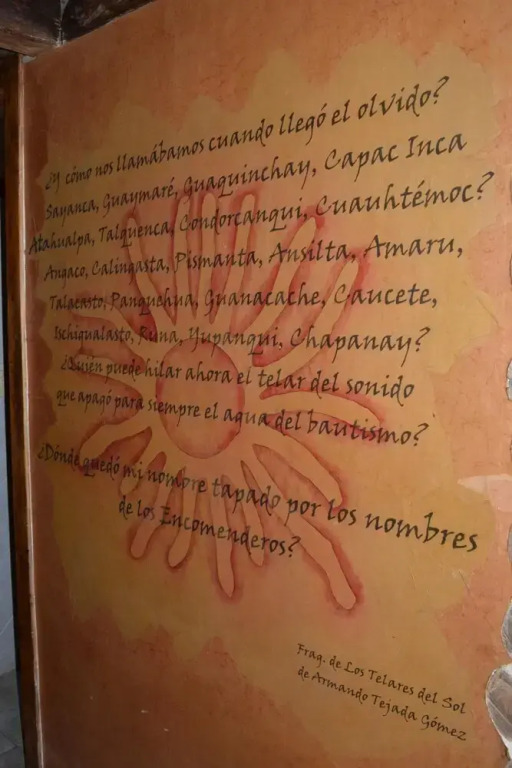 ¿Y cómo nos llamábamos cuando llegó el olvido?
Sayanca, Guaymaré, Guaquinchay, Capac Inca
Atahualpa, Talquenca, Condorcanqui, Cuauhtémoc?
Angaco, Calingasta, Pismanta, Ansilta, Amaru,
Talacasto, Panquehua, Guanacache, Caucete,
Ischigualasto, Runa, Yupanqui, Chapanay?
¿Quién puede hilar ahora el telar del sonido
que apagó para siempre el agua del bautismo?
¿Dónde quedó mi nombre tapado por los nombres
de los Encomenderos?
Frag. de Los Telares del Sol
de Armando Tejada Gómez